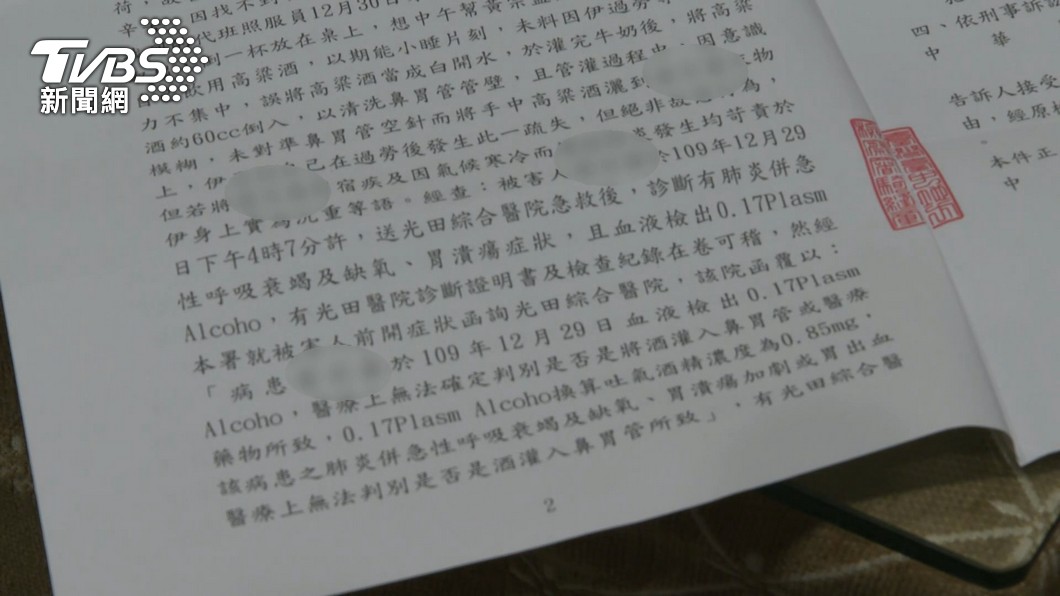 TVBS
新聞網
荷，故
因找不到
代班照服員12月30日
倒一杯放在桌上，想中午幫黃
飲用高粱酒，以期能小睡片刻，未料因伊過勞
力不集中，誤將高粱酒當成白開水，於灌完牛奶後，將高粱
酒約60cc倒入，以清洗鼻胃管管壁，且管灌過程中，因意識
模糊，未對準鼻胃管空針而將手中高粱酒灑到 物
上，伊 已在過勞後發生此一疏失，但絕非 為，
但若將 宿疾及因氣候寒冷而 發生均苛責於
伊身上實為沉重等語。經查：被害人 於109年12月29
日下午4時7分許，送光田綜合醫院急救後，診斷有肺炎併急
性呼吸衰竭及缺氧、胃潰瘍症狀，且血液檢出0.17Plasm
Alcoho，有光田醫院診斷證明書及檢查紀錄在卷可稽，然經
本署就被害人前開症狀函詢光田綜合醫院，該院函覆以：
「病患 於109年12月29日血液檢出0.17Plasm
Alcoho，醫療上無法確定判別是否是將酒灌入鼻胃管或醫療
藥物所致，0.17Plasm Alcoho換算吐氣酒精濃度為0.85mg，
該病患之肺炎併急性呼吸衰竭及缺氧、胃潰瘍加劇或胃出血
醫療上無法判別是否是酒灌入鼻胃管所致」，有光田綜合醫
2
四、依刑事訴訟
中 華
告訴人接受
由，經原
。
本件正
中